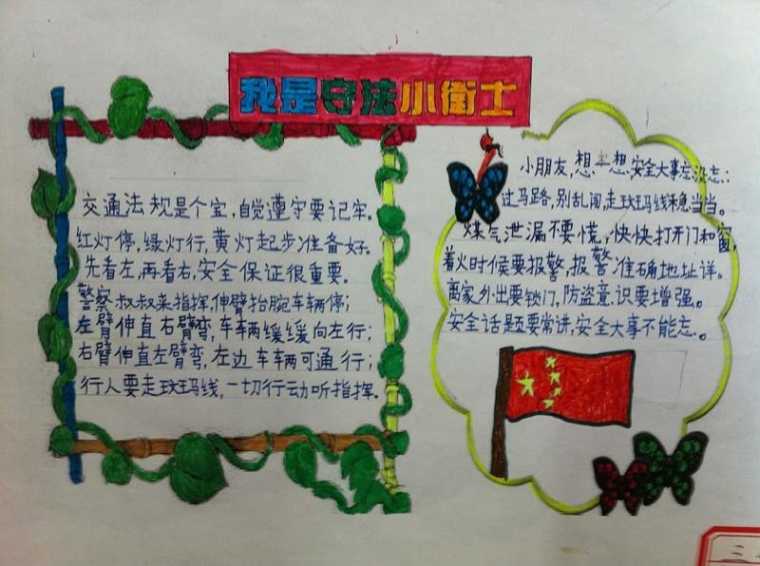 我是守法小衛士
交通法规是个宝,自觉遵守要记牢。
红灯停,绿灯行,黄灯起步准备好。
先看左,再看右,安全保证很重要。
警察叔叔来指挥,伸臂抬腕车辆停;
左臂伸直右臂弯,车车两缓缓向左行;
右臂伸直左臂弯,左边车辆可通行;
行人要走玟玛线,一切行动听指挥。
小朋友,想一想,安全大事忘没忘:
过马路,别乱闹,走玟玛线稳当当。
煤气泄漏不要慌,快快打开门和窗,
着火时候要报警,报警准确地址详。
离家外出要锁门,防盗意识要增强。
安全话题要常讲,安全大事不能忘。